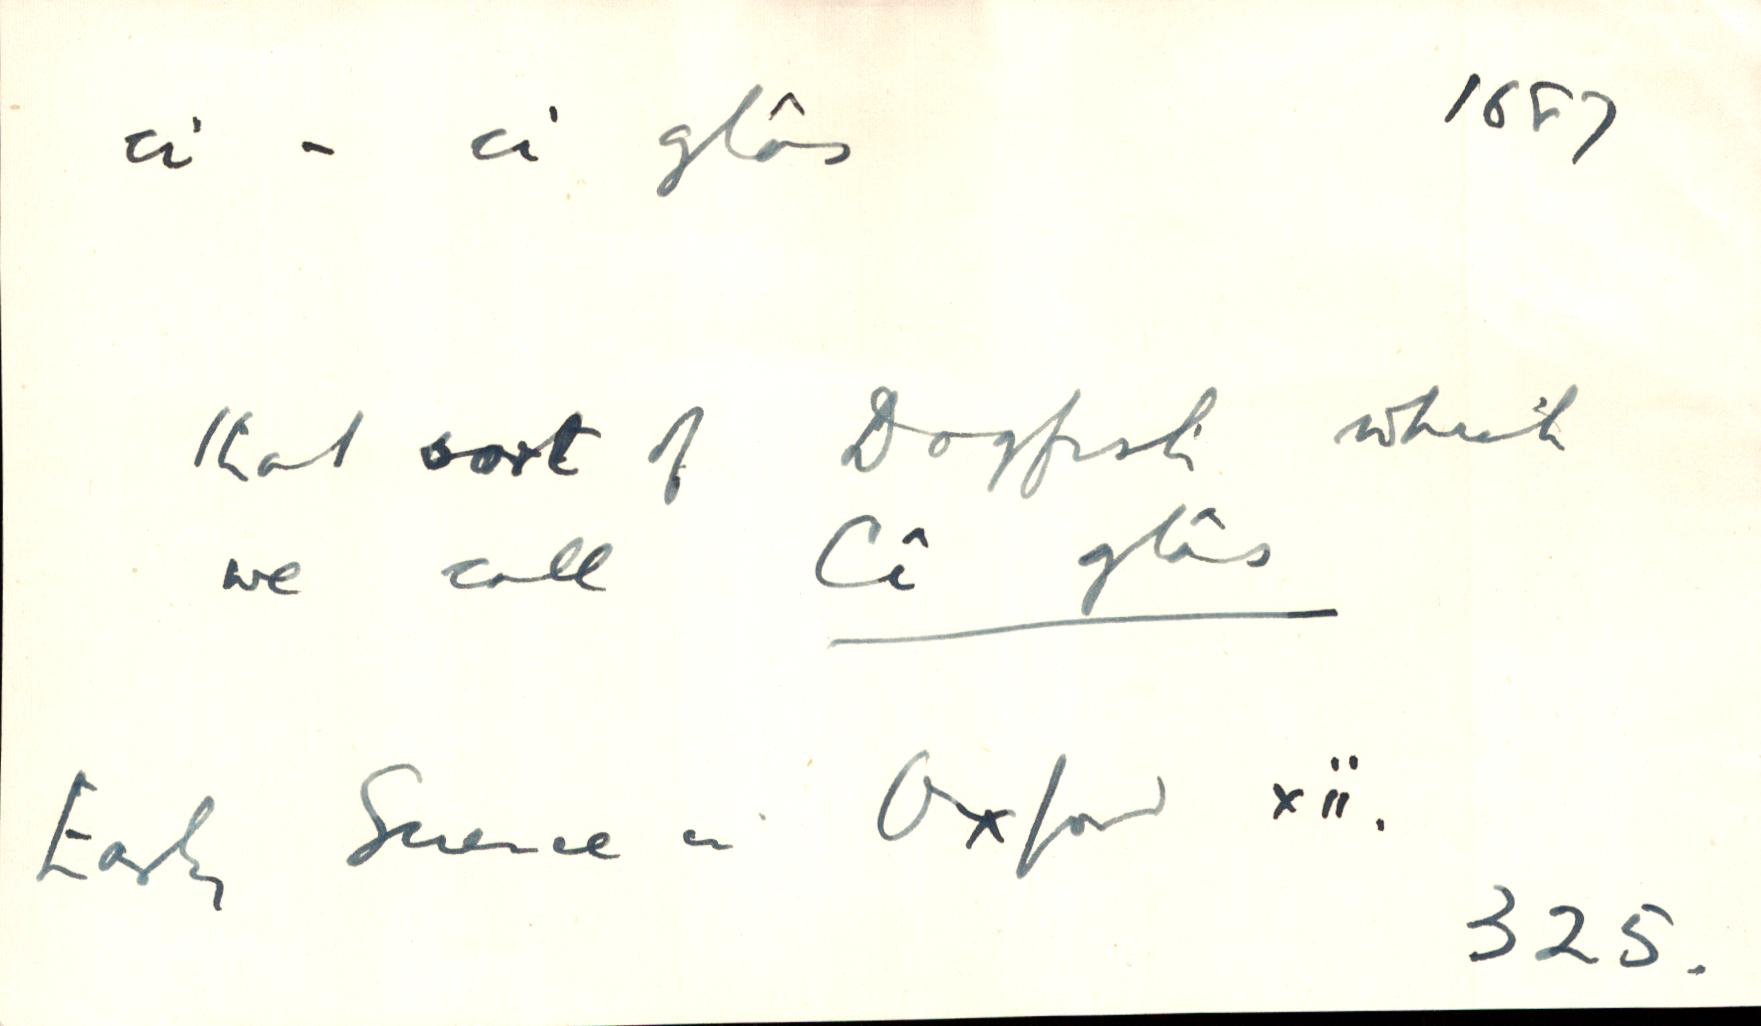 ci - ci glâs 1687
that sort of Dogfish which
we call Cî glâs
Early Science in Oxford xii.
325.